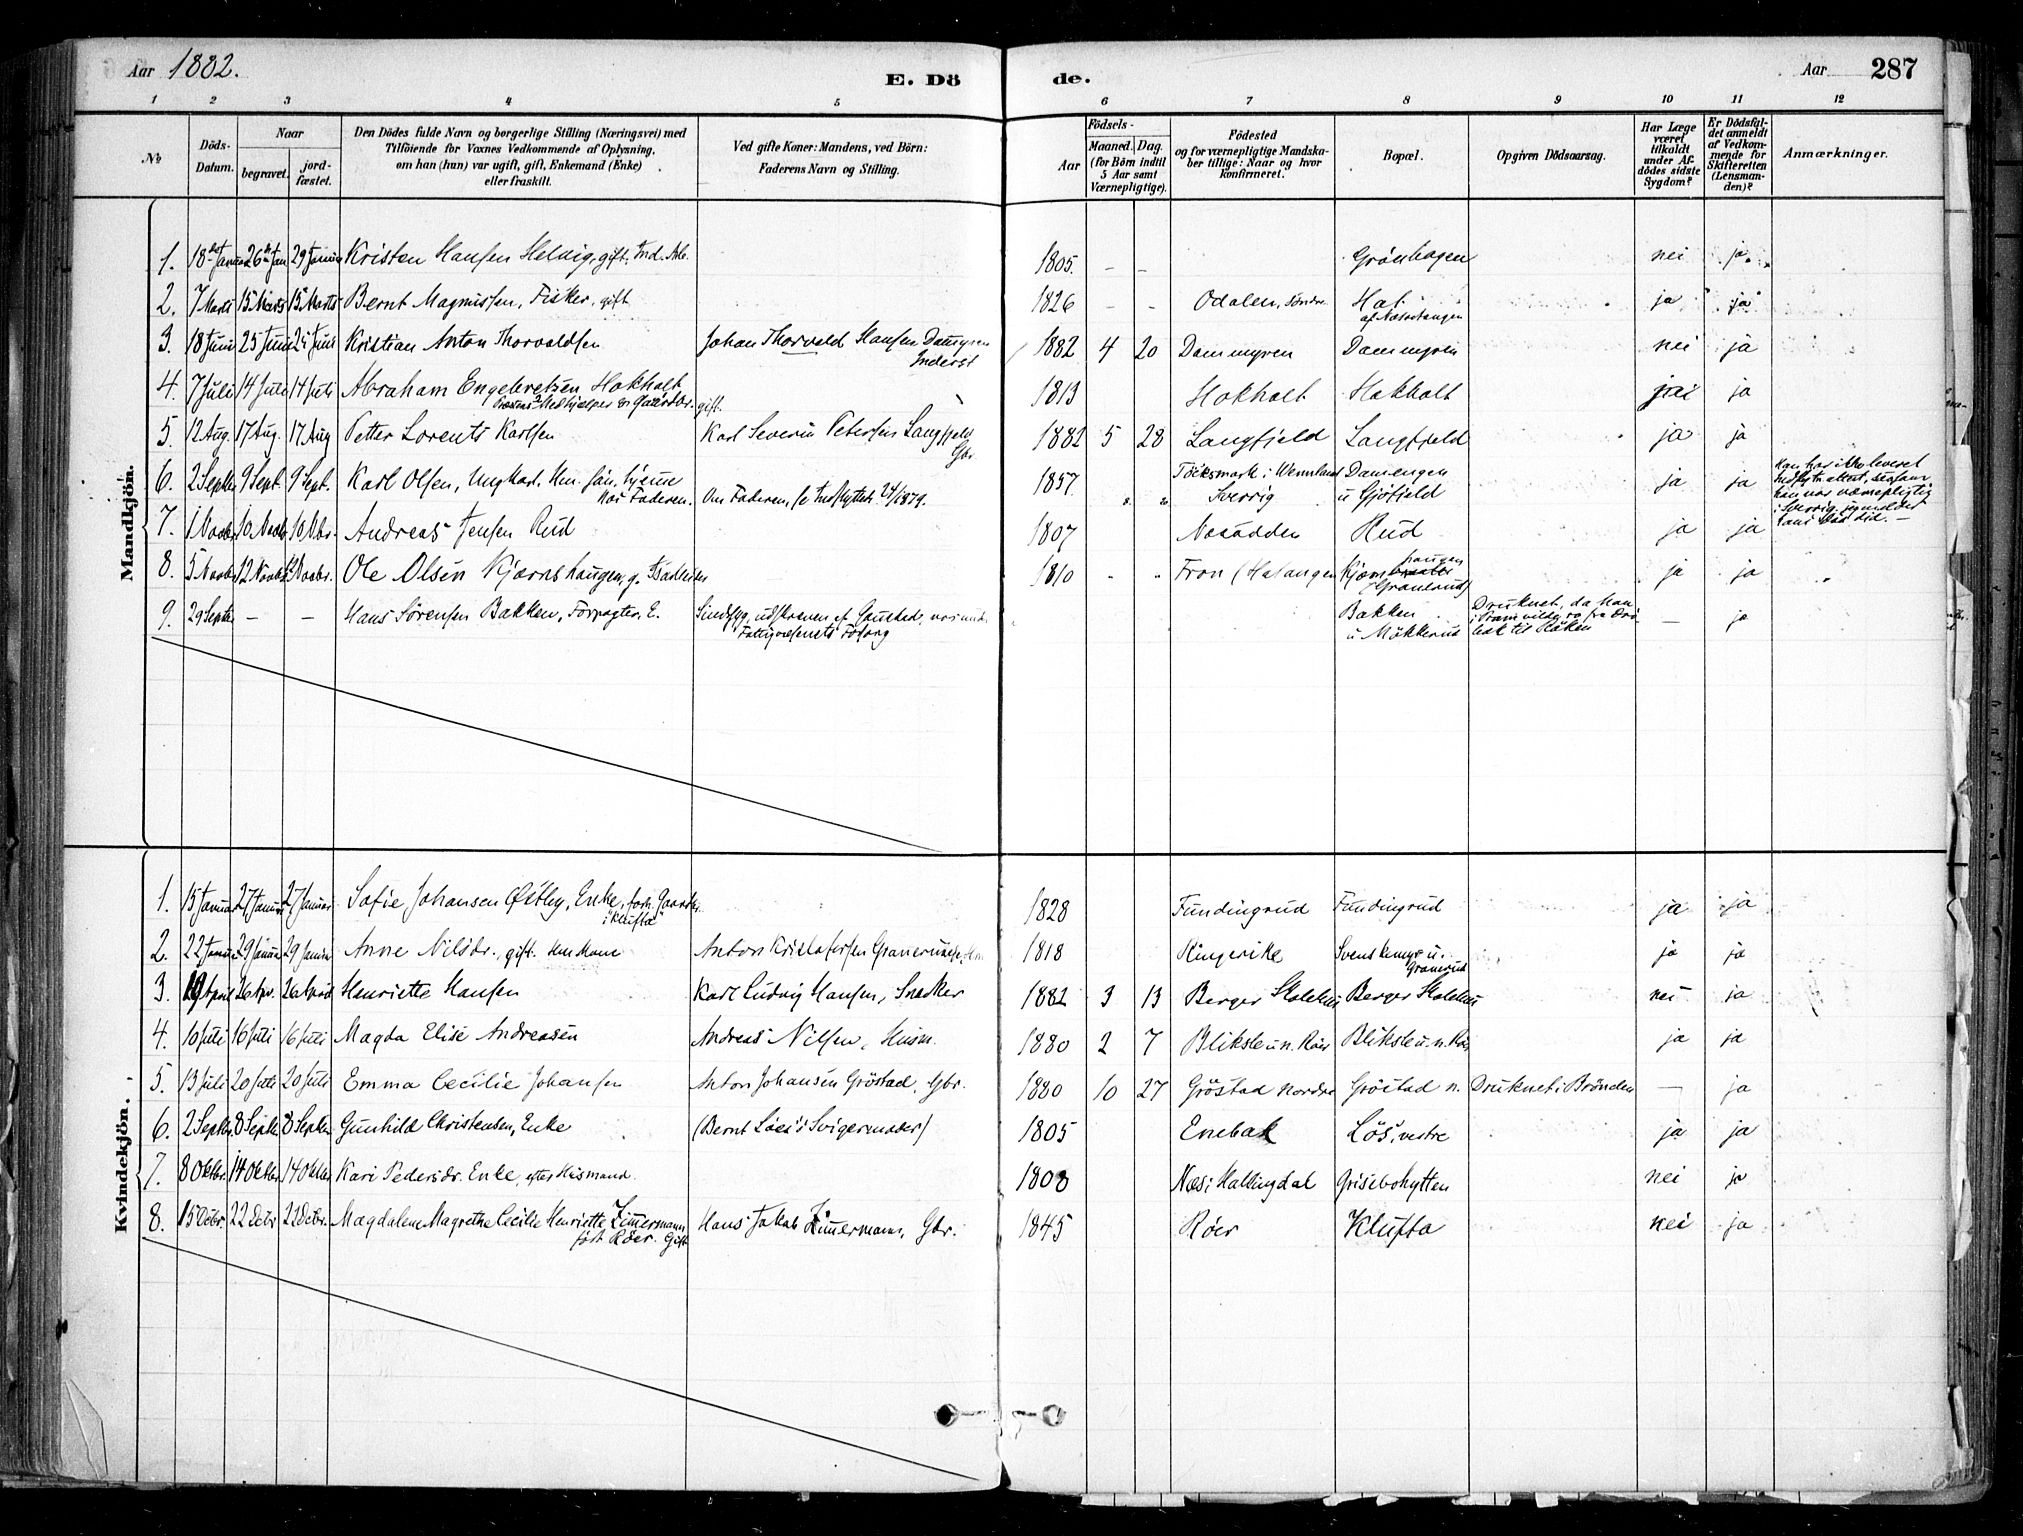 Aar 1882.
E. Dö de.
Aar 287
1 2 3 4 5 6 7 8 9 10 11 12
No
Döds-Datum.
Naar
begravet.
jord-fæstet.
Den Dödes fulde Navn og borgerlige Stilling (Næringsvei) med
Tilföiende for Voxnes Vedkommende af Oplysning,
om han (hun) var ugift, gift, Enkemand (Enke)
eller fraskilt.
Ved gifte Koner: Mandens, ved Börn:
Faderens Navn og Stilling.
Födsels-
Aar
Maaned. Dag.
(for Börn indtil
5 Aar samt
Værnepligtige).
Födested
og for værnepligtige Mandska-
ber tillige: Naar og hvor
konfirmeret.
Bopæl.
Opgiven Dödsaarsag.
Har Læge
været
tilkaldt
under Af-
dödes sidste
Sygdom?
Er Dödsfal-
det anmeldt
af Vedkom-
mende for
Skifteretten
(Lensman-
den)?
Anmærkninger.
Mandkjön.
1. 18de Januar 26de Jan 29 Januar Kristen Hansen Helvig, gift. Ind. 1805. – – Grönhagen nei ja.
2. 7 Marts 15 Marts 15 Marts Bernt Magnussen, Fisker, gift 1826 – – Odalen, söndre Hal ja ja
af Næsoddtangen
3. 18 Juni 25 Juni 25 Juni Kristian Anton Thorvaldsen Johan Thorvald Hansen Dammyren 1882 4 20 Dammyren Dammyren nei ja
Inderst
4. 7 Juli 14 Juli 14 Juli Abraham Engebretsen Hokholt 1813 Hokholt Hokholt ja
Præstens Medhjælper og Gaardbr. gift.
5. 12 Aug. 17 Aug. 17 Aug Petter Lorents Karlsen Karl Severin Petersen Langfjeld 1882 5 28 Langfjeld Langfjeld ja ja
Gbr.
6. 2 Septbr 9 Sept. 9 Sept. Karl Olsen, Ungkarl. hjeme 1857 Töcksmark i Wermland Damengen ja ja
hos Faderen. Om Faderen, se 1879. Sverrig u Gjöfjeld
Han har ikke leveret
han var værnepligtig
i Sverrig,
7. 1 Novbr 10 Novbr 10 Nbr. Andreas Jensen Rud 1807 Nesodden Rud ja ja
8. 5 Novbr 12 Novbr 12 Novbr. Ole Olsen Kjærnshaugen, g. 1810 Fron (Hatangen Kjærnshaugen ja ja
(Granerud)
9. 29 Septbr – – Hans Sörensen Bakken, Forpagter, E. Sindssyg, udskreven af Gaustad, Bakken Druknet, da han – ja
Fattigvæsenets Forsorg u Mökkerud i Pram vilde ro fra Drö-
bak til Höken
Kvindekjön.
1. 15 Januar 27 Januar 27 Januar Sofie Johansen Østby, Enke, forh. Gaardbr. 1828 Fundingrud Fundingrud ja ja
i "Klufta"
2. 22 Januar 29 Januar 29 Januar Anne Nilsdr., gift. Anton Kristofersen Granerud 1818 Ringerike Svenskemyr u. ja ja
Granerud
3. 19 April 26 Apr. 26 April Henriette Hansen Karl Ludvig Hansen, Snedker 1882 3 13 Berger Skolehus Berger Skolehus nei ja
4. 10 Juli 16 Juli 16 Juli Magda Elise Andreasen Andreas Nilsen, Husm. 1880 2 7 Bliksle u. n. Röer Bliksle u. n. Röer ja ja
5. 13 Juli 20 Juli 20 Juli Emma Cecilie Johansen Anton Johansen Gröstad, Gbr. 1880 10 27 Gröstad nordre Gröstad n. Druknet i Brönden – ja
6. 2 Septbr. 8 Septbr 8 Septbr Gunhild Christensen, Enke (Bernt Löes's Svigermoder) 1805 Enebak Lös, vestre ja ja
7. 8 Oktbr. 14 Oktbr 14 Oktbr Kari Pedersdr. Enke, efter Husmand. 1808 Næs i Hallingdal Grisebohytten nei ja
8. 15 Octbr. 22 Octbr 22 Octbr. Magdalene Magrethe Cecilie Henriette Zimmermann Hans Jakob Zimmermann, Gbr. 1845 Röer Klufta nei ja
föd. Röer. Gift